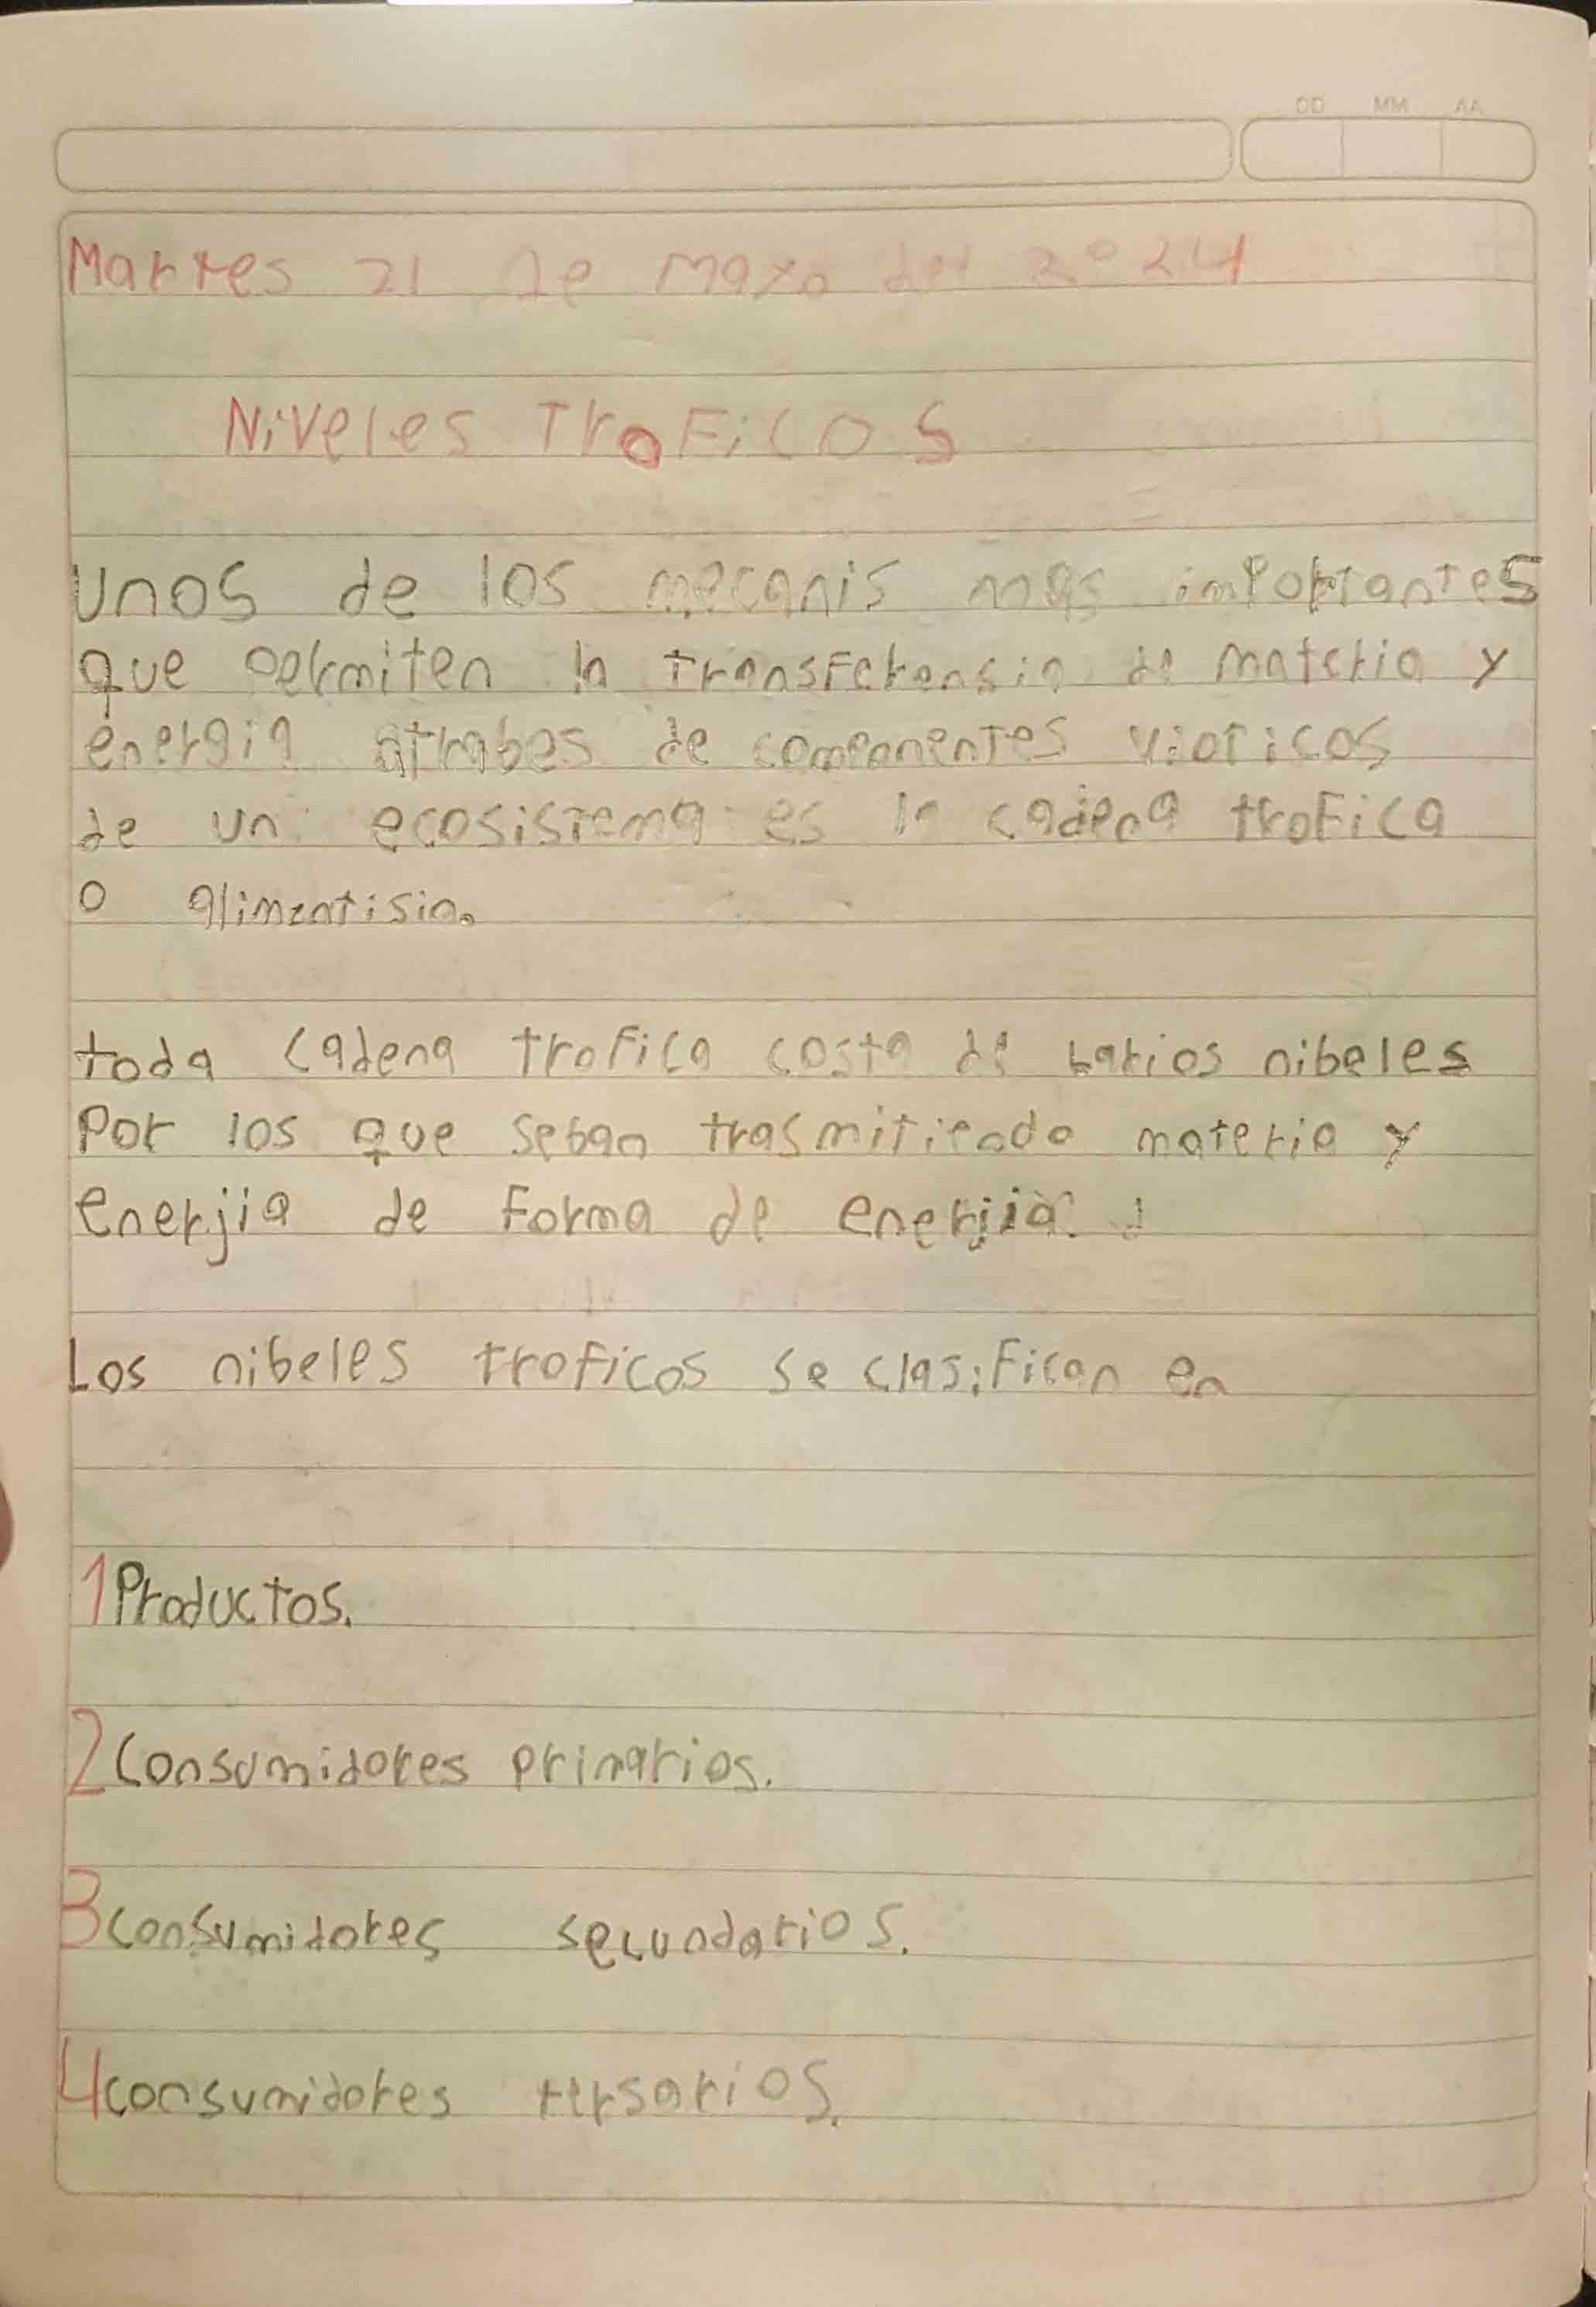 DD MM AA
Martes 21 de Mayo del 2024
NiVeles TroFiCOS
Unos de los mecanis mas importantes
que permiten la transferensia de materia y
energia atrabes de componentes vioticos
de un ecosistema es la cadena trofica
o alimentisia.
toda cadena trofica costa de barios nibeles
Por los que seban trasmitiendo materia y
enerjia de forma de enerjia.
Los nibeles troficos se clasifican en
1 Productos.
2 Consumidores primarios.
3 consumidores secundarios.
4 consumidores tersarios.